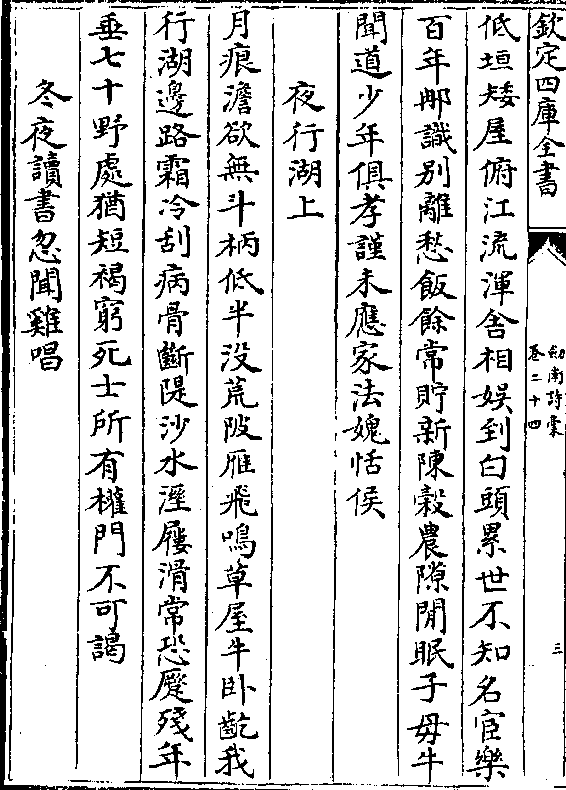 欽定四庫全書
劒南詩稾
卷二十四
三
低垣矮屋俯江流渾舍相娱到白頭累世不知名宦樂
百年那識别離愁飯餘常貯新陳穀農隙閒眠子母牛
聞道少年俱孝謹未應家法媿恬侯
夜行湖上
月痕澹欲無斗柄低半没荒陂雁飛鳴草屋牛卧齕我
行湖邊路霜冷刮病骨斷隄沙水溼屨滑常恐蹷殘年
垂七十野處猶短褐窮死士所有權門不可謁
冬夜讀書忽聞雞唱